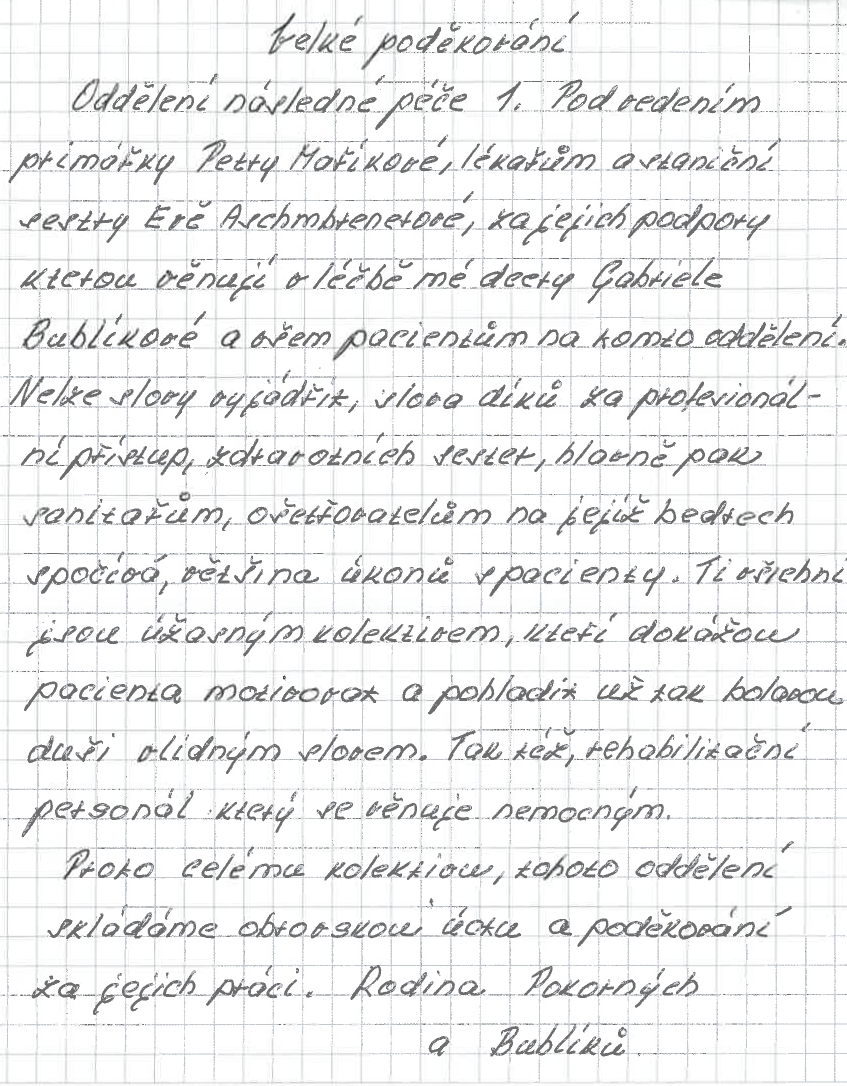 Velké poděkování
Oddělení následné péče 1. Pod vedením
primářky Petry Maříkové, lékařům a staniční
sestry Evě Aschmbrenerové, za jejich podpory
kterou věnují v léčbě mé dcery Gabriele
Bublíkové a všem pacientům na tomto oddělení.
Nelze slovy vyjádřit, slova díků za profesionál-
ní přístup, zdravotních sester, hlavně pak
sanitařům, ošetřovatelům na jejíž bedrech
spočívá, většina úkonů s pacienty. Ti všichni
jsou úžasným kolektivem, kteří dokážou
pacienta motivovat a pohladit už tak bolavou
duši vlídným slovem. Tak též, rehabilitační
personál který se věnuje nemocným.
Proto celému kolektivu, tohoto oddělení
skládáme obrovskou úctu a poděkování
za jejich práci. Rodina Pokorných
a Bublíků.